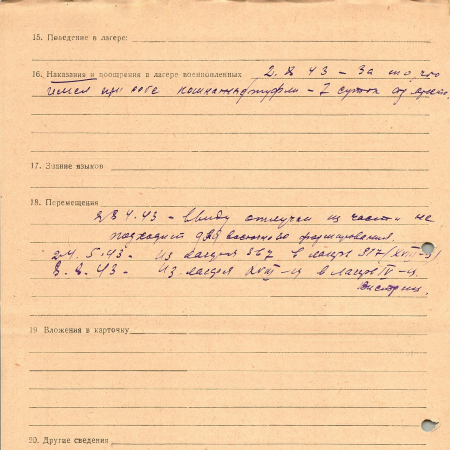 15. Поведение в лагере:
16. Наказания и поощрения в лагере военнопленных 2. 8 43 – За то, что
имел при себе – 7 суток
17. Знание языков
18. Перемещения
28 4.43 – Ввиду отлучки из части не
подходит для восточного формирования.
24. 5. 43. из лагеря 367 в лагерь 317/XVIII-Ц
8. 8. 43. Из лагеря XVIII-Ц в лагерь IV-Ц
19 Вложения в карточку
20. Другие сведения